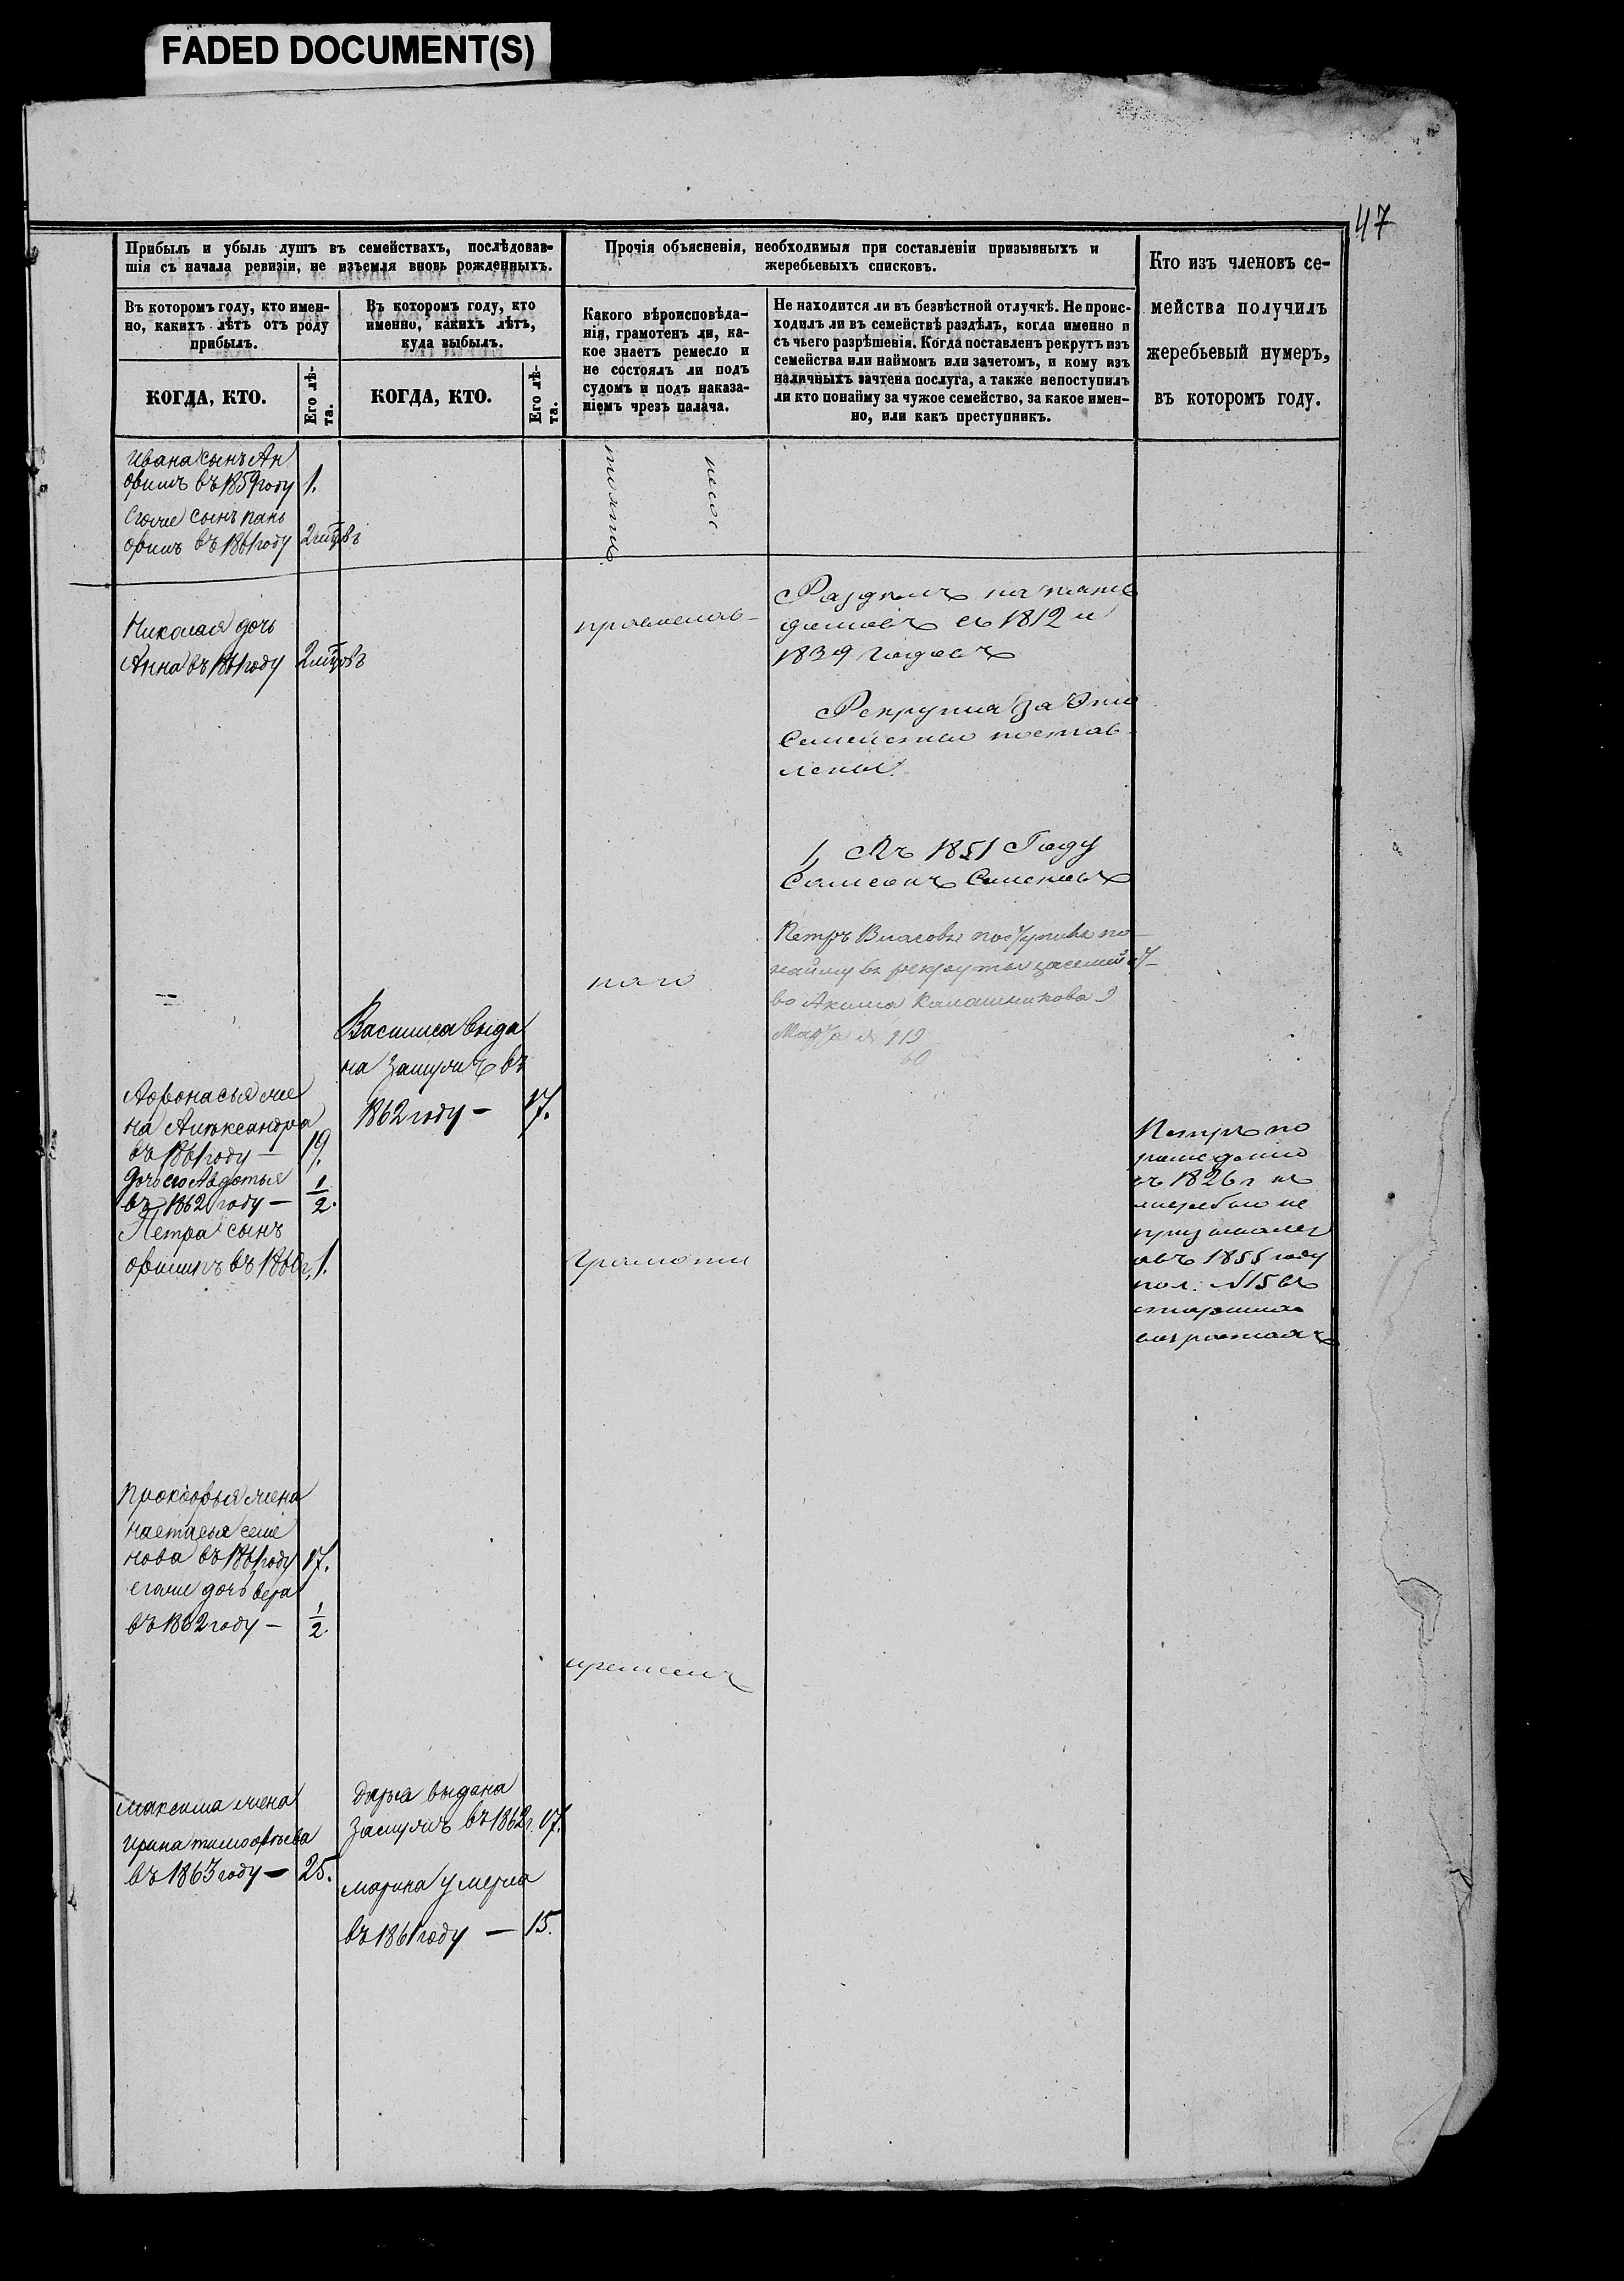 FADED DOCUMENT(S)
47
Прибыль и убыль душъ въ семействахъ, послѣдовав-
шія съ начала ревизіи, не изъемля вновь рожденныхъ.
Въ которомъ году, кто имен-
но, какихъ лѣтъ отъ роду
прибылъ.
КОГДА, КТО.
Его лѣ-
та.
Въ которомъ году, кто
именно, какихъ лѣтъ,
куда выбылъ.
КОГДА, КТО.
Его лѣ-
та.
Прочія объясненія, необходимыя при составленіи призывныхъ и
жеребьевыхъ списковъ.
Какого вѣроисповѣда-
нія, грамотенъ ли, ка-
кое знаетъ ремесло и
не состоялъ ли подъ
судомъ и подъ наказа-
ніемъ чрезъ палача.
Не находится ли въ безвѣстной отлучкѣ. Не проис-
ходилъ ли въ семействѣ раздѣлъ, когда именно и
съ чьего разрѣшенія. Когда поставленъ рекрутъ изъ
семейства или наймомъ или зачетомъ, и кому изъ
наличныхъ зачтена послуга, а также непоступилъ
ли кто понайму за чужое семейство, за какое имен-
но, или какъ преступникъ.
Кто изъ членовъ се-
мейства получилъ
жеребьевый нумеръ,
въ которомъ году.
Ивана сынъ Ан
въ 1859 году 1.
сынъ
въ 1861 году
Николая дочь
Анна въ 1861 году
Афонасья же
на Александра
въ 1861 году — 19.
дочь его Авдотья
въ 1862 году — 1/2.
Петра сынъ
въ 1860 г. 1.
Прокофья жена
настасья семе
нова въ 1861 году 17.
егоже дочь вера
въ 1862 году — 1/2.
максима жена
ирина тимофѣева
въ 1863 году — 25.
Василиса выда
на замужъ въ
1862 году — 17.
дарья выдана
замужъ въ 1862 г. 17.
марина умерла
въ 1861 году — 15.
православ-
наго
грамоти
Раздѣлъ
съ 1812 и
1839 годовъ
Рекрута за это
Семейство постав-
лены
1, Въ 1851 Году
Самсонъ Семеновъ
Петръ Власовъ поступилъ по
найму въ рекруты за семейст-
во Акима Калашникова 9
Марта № 119
60
Петръ по
рожденію
въ 1826 г къ
жеребью не
въ 1855 году
пол: №15 въ